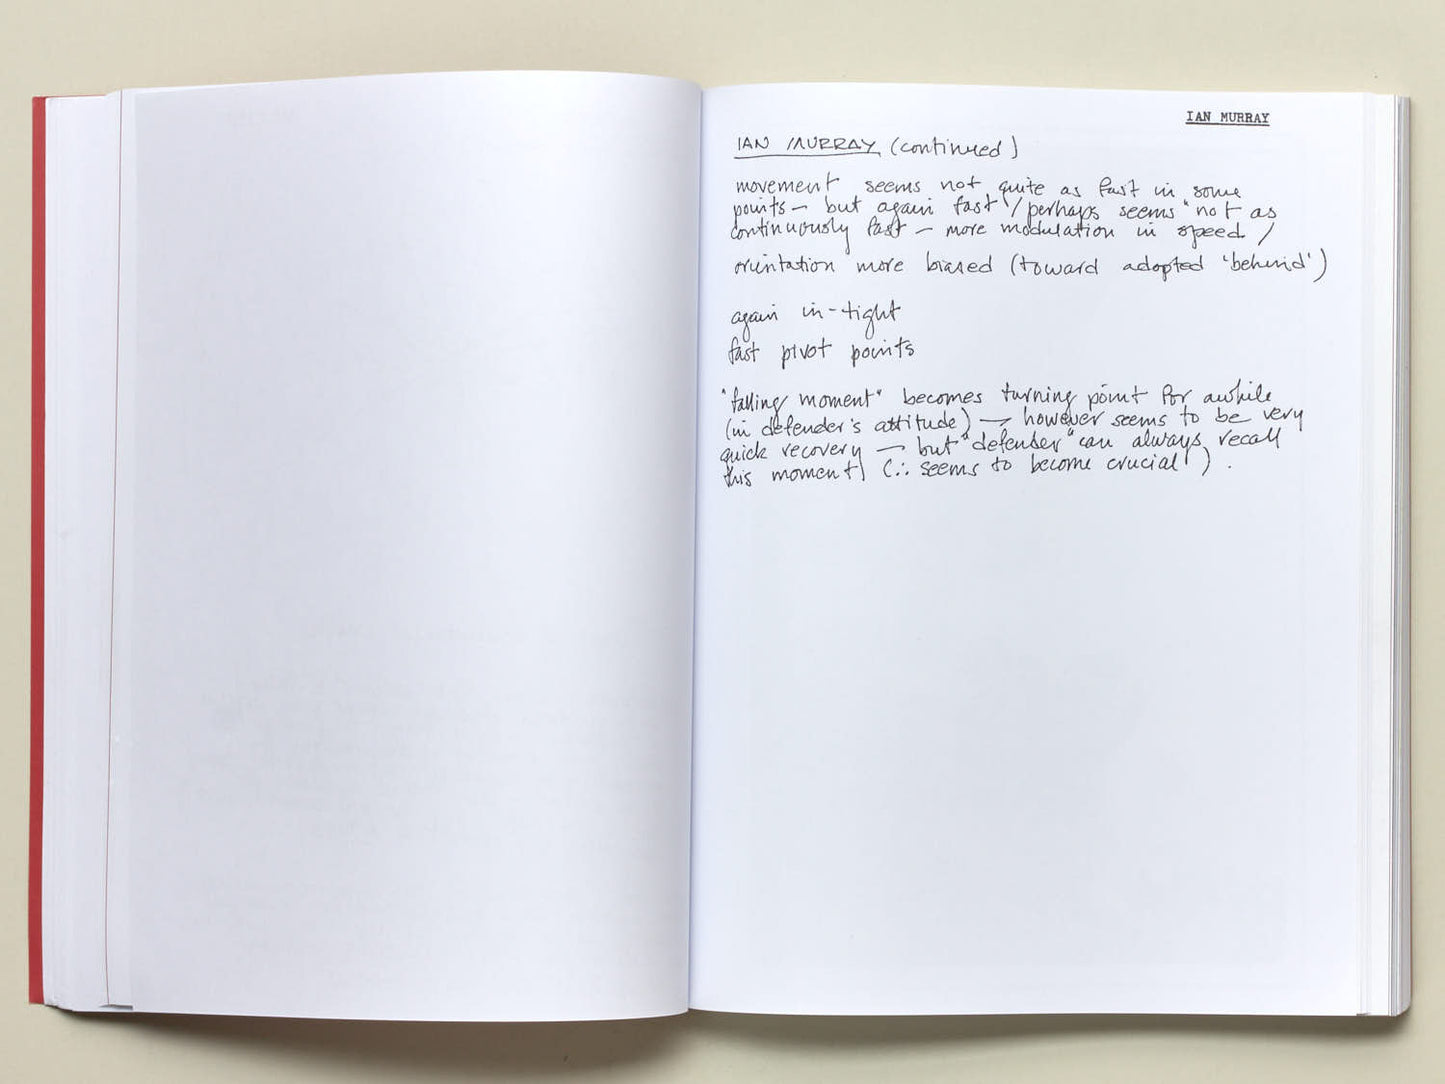 IAN MURRAY
IAN MURRAY (continued)
movement seems not quite as fast in some
points – but again fast / perhaps seems "not as
continuously fast – more modulation in speed /
orientation more biased (toward adopted 'behind')
again in-tight
fast pivot points
"falling moment" becomes turning point for awhile
(in defender's attitude) – however seems to be very
quick recovery – but "defender" can always recall
this moment (∴ seems to become crucial).